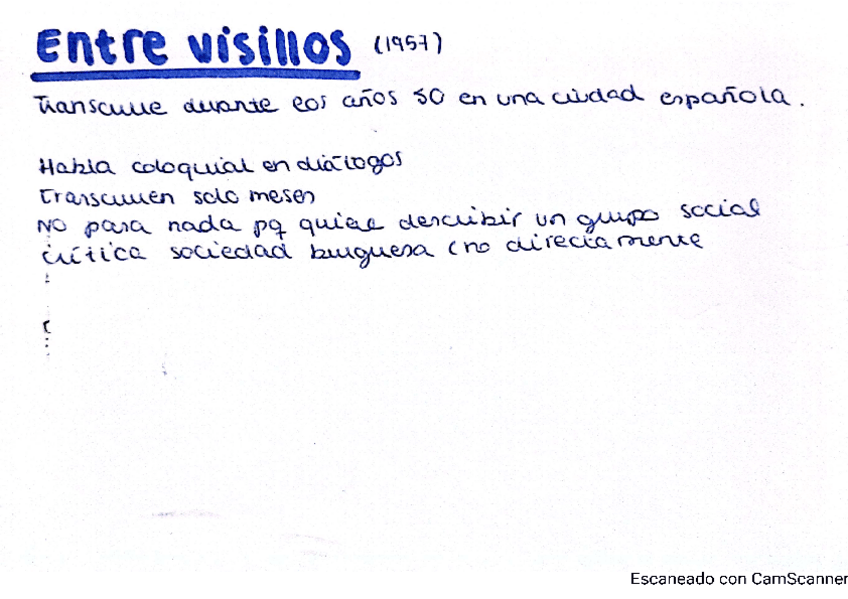 Entre visillos (1957)
Transcurre durante los años 50 en una ciudad española.
Habla coloquial en diálogos
transcurren solo meses
No pasa nada pq quiere describir un grupo social
crítica sociedad burguesa (no directamente
Escaneado con CamScanner